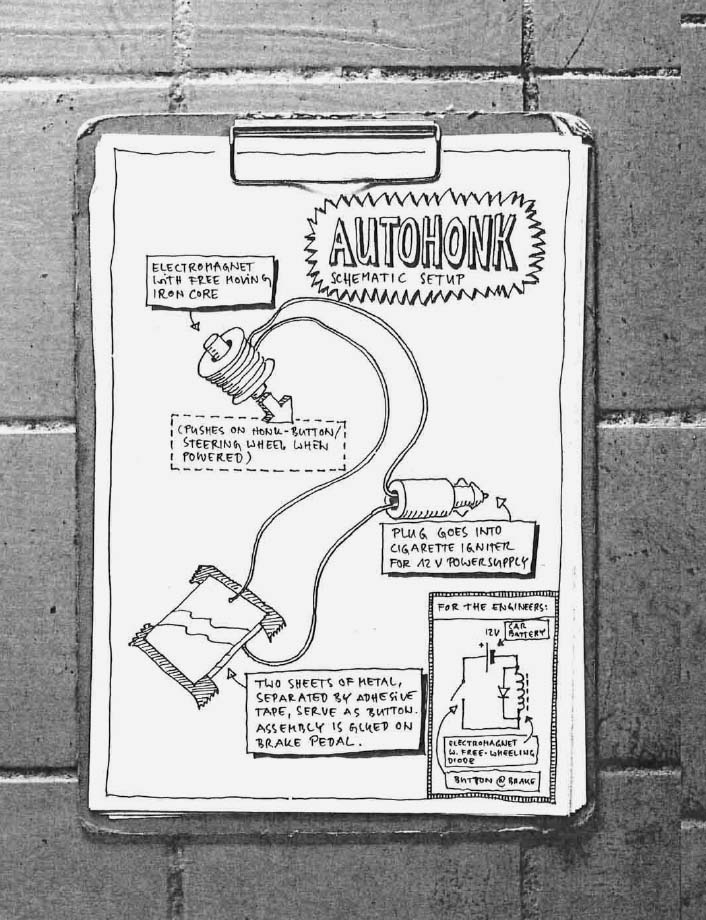 AUTOHONK
SCHEMATIC SETUP
ELECTROMAGNET
WITH FREE MOVING
IRON CORE
(PUSHES ON HONK-BUTTON/
STEERING WHEEL WHEN
POWERED)
PLUG GOES INTO
CIGARETTE IGNITER
FOR 12 V POWERSUPPLY
TWO SHEETS OF METAL,
SEPARATED BY ADHESIVE
TAPE, SERVE AS BUTTON.
ASSEMBLY IS GLUED ON
BRAKE PEDAL.
FOR THE ENGINEERS:
12V
CAR
BATTERY
+
ELECTROMAGNET
W. FREE-WHEELING
DIODE
BUTTON @ BRAKE